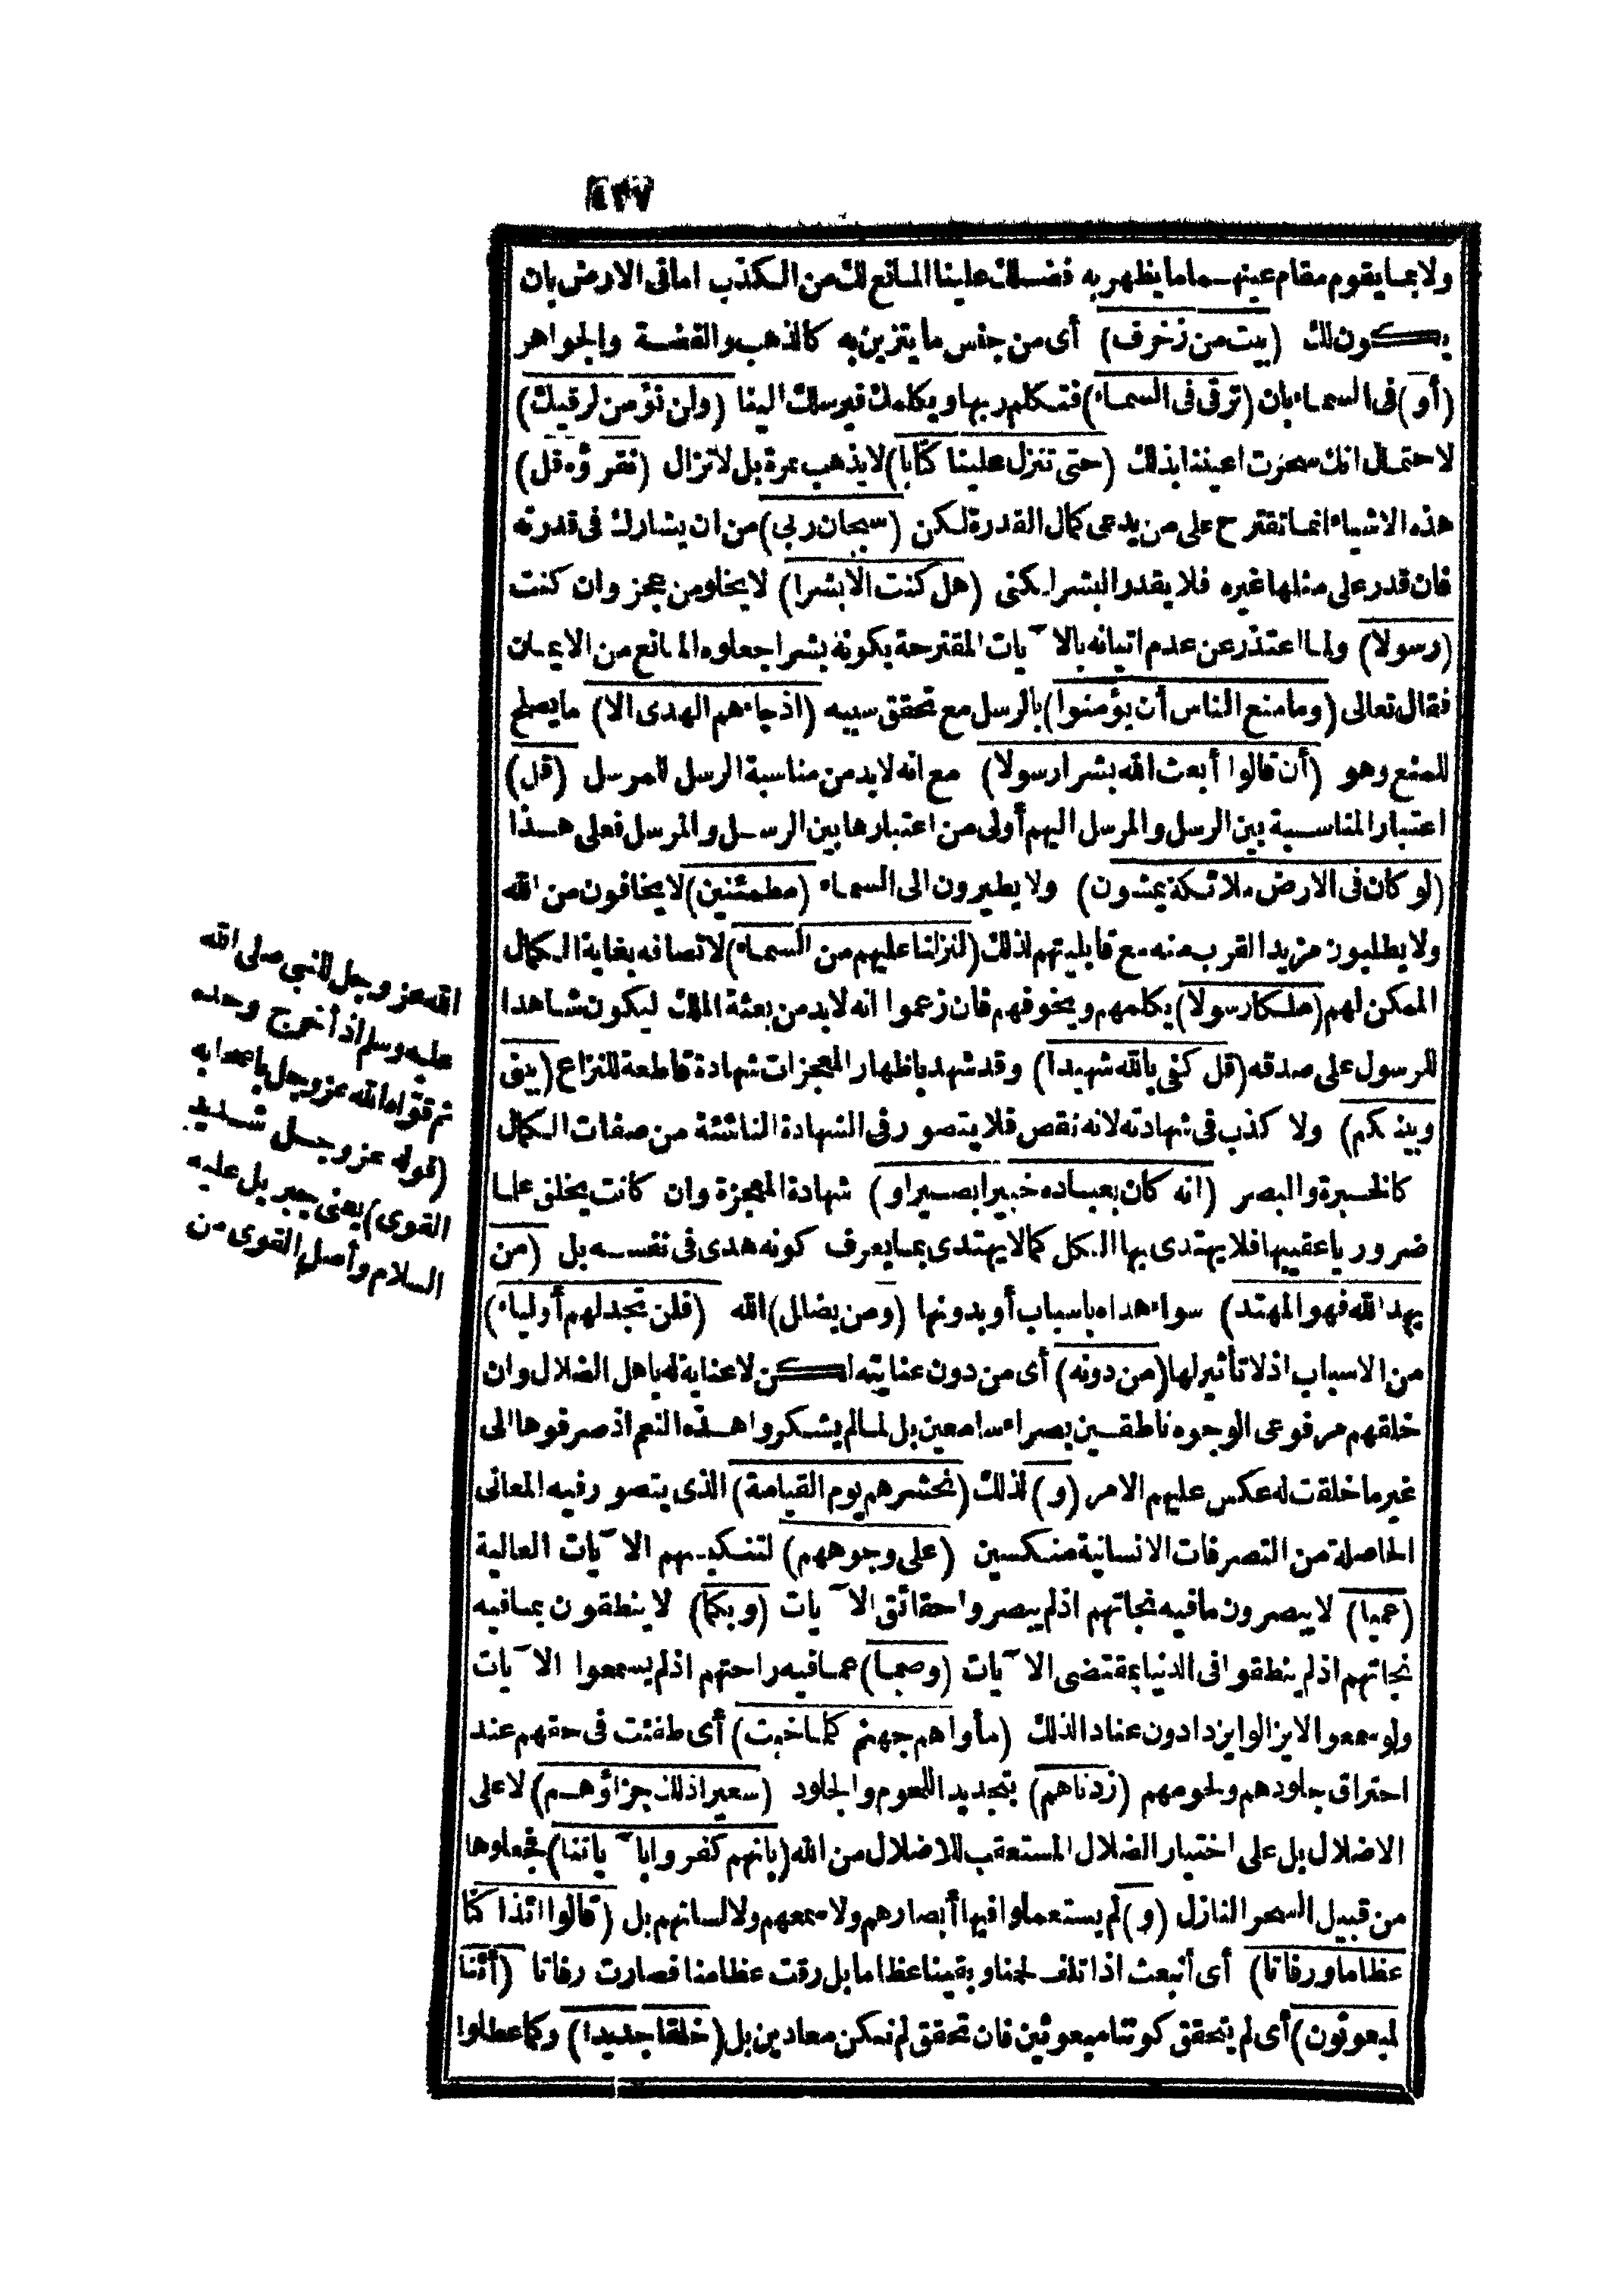 ٤٣٧
ولا بما يقوم مقام عينهما ما يظهر به فضلك علينا المانع لك من الكذب اما فى الارض بان
يكون لك (بيت من زخرف) أى من جنس ما يتزين به كالذهب والفضة والجواهر
(أو) فى السماء بان (ترقى فى السماء) فتكلم ربها ويكلمك فيرسلك الينا (ولن نؤمن لرقيك)
لاحتمال انك سحرت اعيننا بذلك (حتى تنزل علينا كتابا) لا يذهب بمرة بل لا تزال (نقرؤه قل)
هذه الاشياء انما تقترح على من يدعى كمال القدرة لكن (سبحان ربي) من ان يشارك فى قدرته
فان قدر على مثلها غيره فلا يقدر البشر لكنى (هل كنت الا بشرا) لا يخلو من عجز وان كنت
(رسولا) ولما اعتذر عن عدم اتيانه بالآيات المقترحة بكونه بشرا جعلوه المانع من الايمان
فقال تعالى (وما منع الناس أن يؤمنوا) بالرسل مع تحقق سببه (اذ جاءهم الهدى الا) ما يصلح
للمنع وهو (أن قالوا أبعث الله بشرا رسولا) مع انه لا بد من مناسبة الرسل للمرسل (قل)
اعتبار المناسبة بين الرسل والمرسل اليهم أولى من اعتبارها بين الرسل والمرسل فعلى هذا
(لو كان فى الارض ملائكة يمشون) ولا يطيرون الى السماء (مطمئنين) لا يخافون من الله
ولا يطلبون مزيد القرب منه مع قابليتهم لذلك (لنزلنا عليهم من السماء) لاتصافه بغاية الكمال
الممكن لهم (ملكا رسولا) يكلمهم ويخوفهم فان زعموا انه لا بد من بعثة الملك ليكون شاهدا
للرسول على صدقه (قل كفى بالله شهيدا) وقد شهد باظهار المعجزات شهادة قاطعة للنزاع (بينى
وبينكم) ولا كذب فى شهادته لانه نقص فلا يتصور فى الشهادة الناشئة من صفات الكمال
كالخبرة والبصر (انه كان بعباده خبيرا بصيرا و) شهادة المعجزة وان كانت يخلق علما
ضروريا عقيبها فلا يهتدى بها الكل كما لا يهتدى بما يعرف كونه هدى فى نفسه بل (من
يهد الله فهو المهتد) سواء هداه باسباب أو بدونها (ومن يضلل) الله (فلن تجد لهم أولياء)
من الاسباب اذ لا تأثير لها (من دونه) أى من دون عنايته لكن لا عناية له باهل الضلال وان
خلقهم مرفوعى الوجوه ناطقين بصراء سامعين بل لما لم يشكروا هذه النعم اذ صرفوها الى
غير ما خلقت له عكس عليهم الامر (و) لذلك (نحشرهم يوم القيامة) الذى يتصور فيه المعانى
الحاصلة من التصرفات الانسانية منكسين (على وجوههم) لتنكيسهم الآيات العالية
(عميا) لا يبصرون ما فيه نجاتهم اذ لم يبصروا حقائق الآيات (وبكما) لا ينطقون بما فيه
نجاتهم اذ لم ينطقوا فى الدنيا بمقتضى الآيات (وصما) عما فيه راحتهم اذ لم يسمعوا الآيات
ولو سمعوا لا يزالوا يزدادون عنادا لذلك (مأواهم جهنم كلما خبت) أى طفئت فى حقهم عند
احتراق جلودهم ولحومهم (زدناهم) بتجديد اللحوم والجلود (سعيرا ذلك جزاؤهم) لا على
الاضلال بل على اختيار الضلال المستعقب للاضلال من الله (بانهم كفروا بآياتنا) فجعلوها
من قبيل السحر النازل (و) لم يستعملوا فيها أبصارهم ولا سمعهم ولا لسانهم بل (قالوا ائذا كنا
عظاما ورفاتا) أى أنبعث اذا تلف لحمنا وبقينا عظاما بل رقت عظامنا فصارت رفاتا (أئنا
لمبعوثون) أى لم يتحقق كوننا مبعوثين فان تحقق لم نكن معادين بل (خلقا جديدا) وكما عطلوا
الله عز وجل للنبى صلى الله
عليه وسلم اذ أخرج وحده
ثم قواه الله عز وجل باصحابه
(قوله عز وجل شديد
القوى) يعنى جبريل عليه
السلام وأصل القوى من